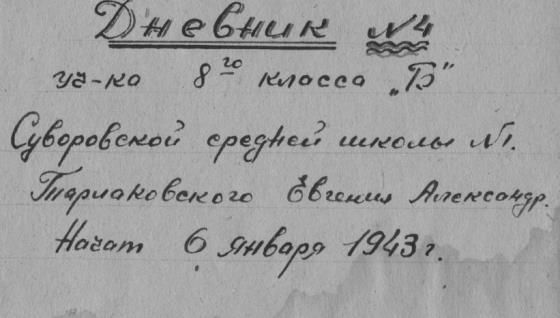 Дневник №4
уч-ка 8го класса „Б"
Суворовской средней школы №1.
Тарлаковского Евгения Александр.
Начат 6 января 1943 г.